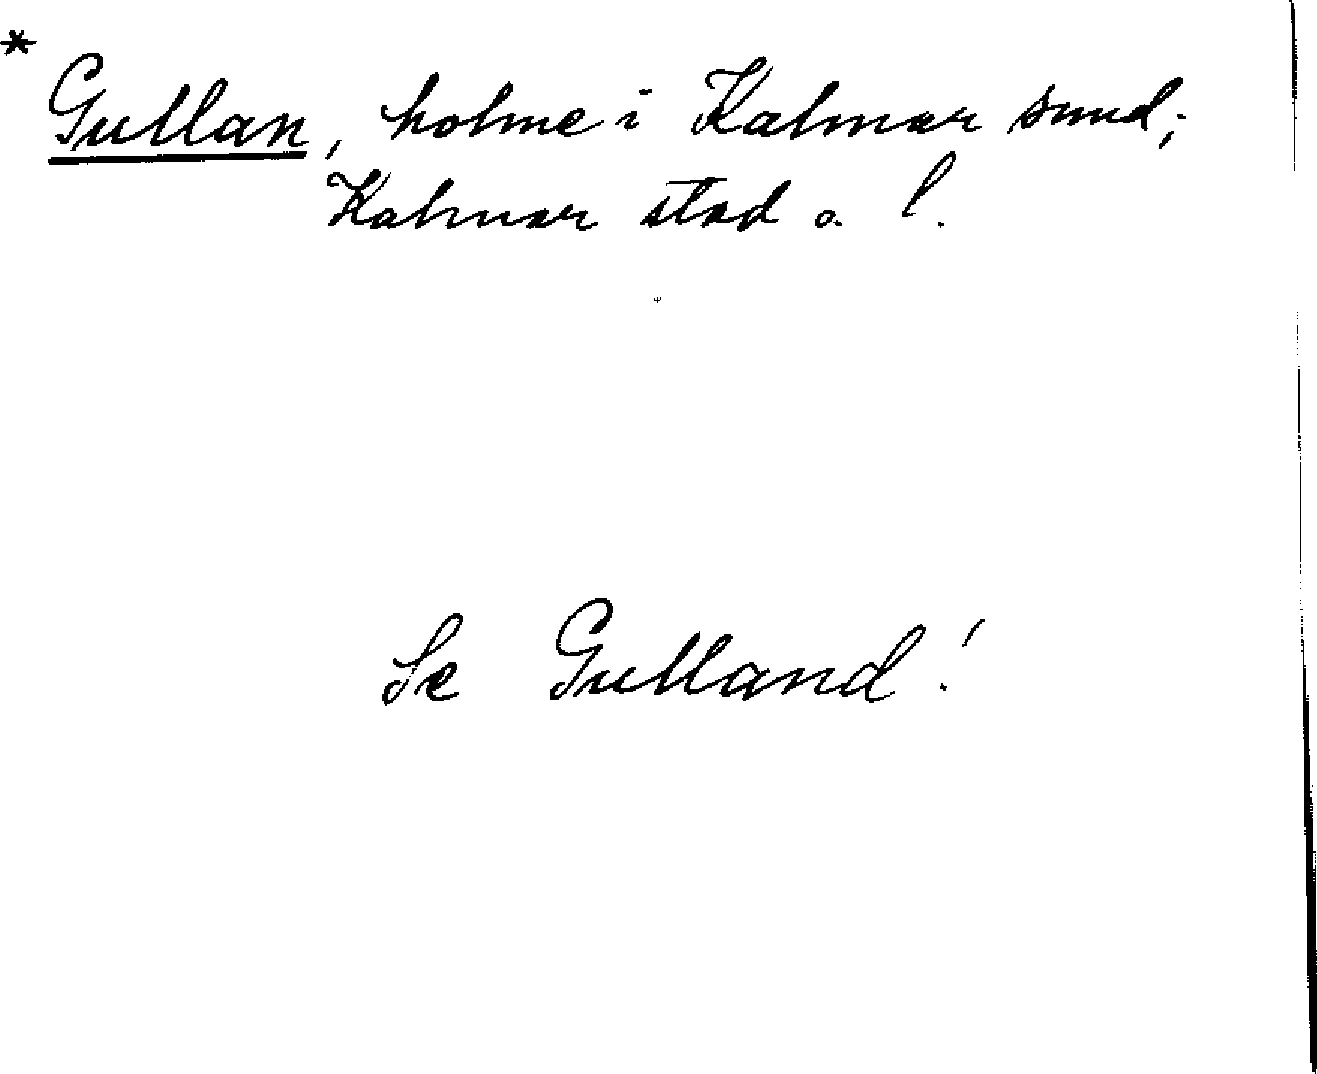 * Gullan, holme i Kalmar sund;
Kalmar stad o. l.
Se Gulland!